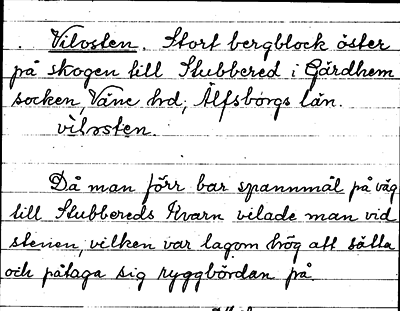 Vilosten. Stort bergblock öster
på skogen till Stubbered i Gärdhem
socken, Väne hd, Älfsborgs län.
vìləsten.
Då man förr bar spannmål på väg
till Stubbereds Kvarn vilade man vid
stenen, vilken var lagom hög att sätta
och påtaga sig ryggbördan på.